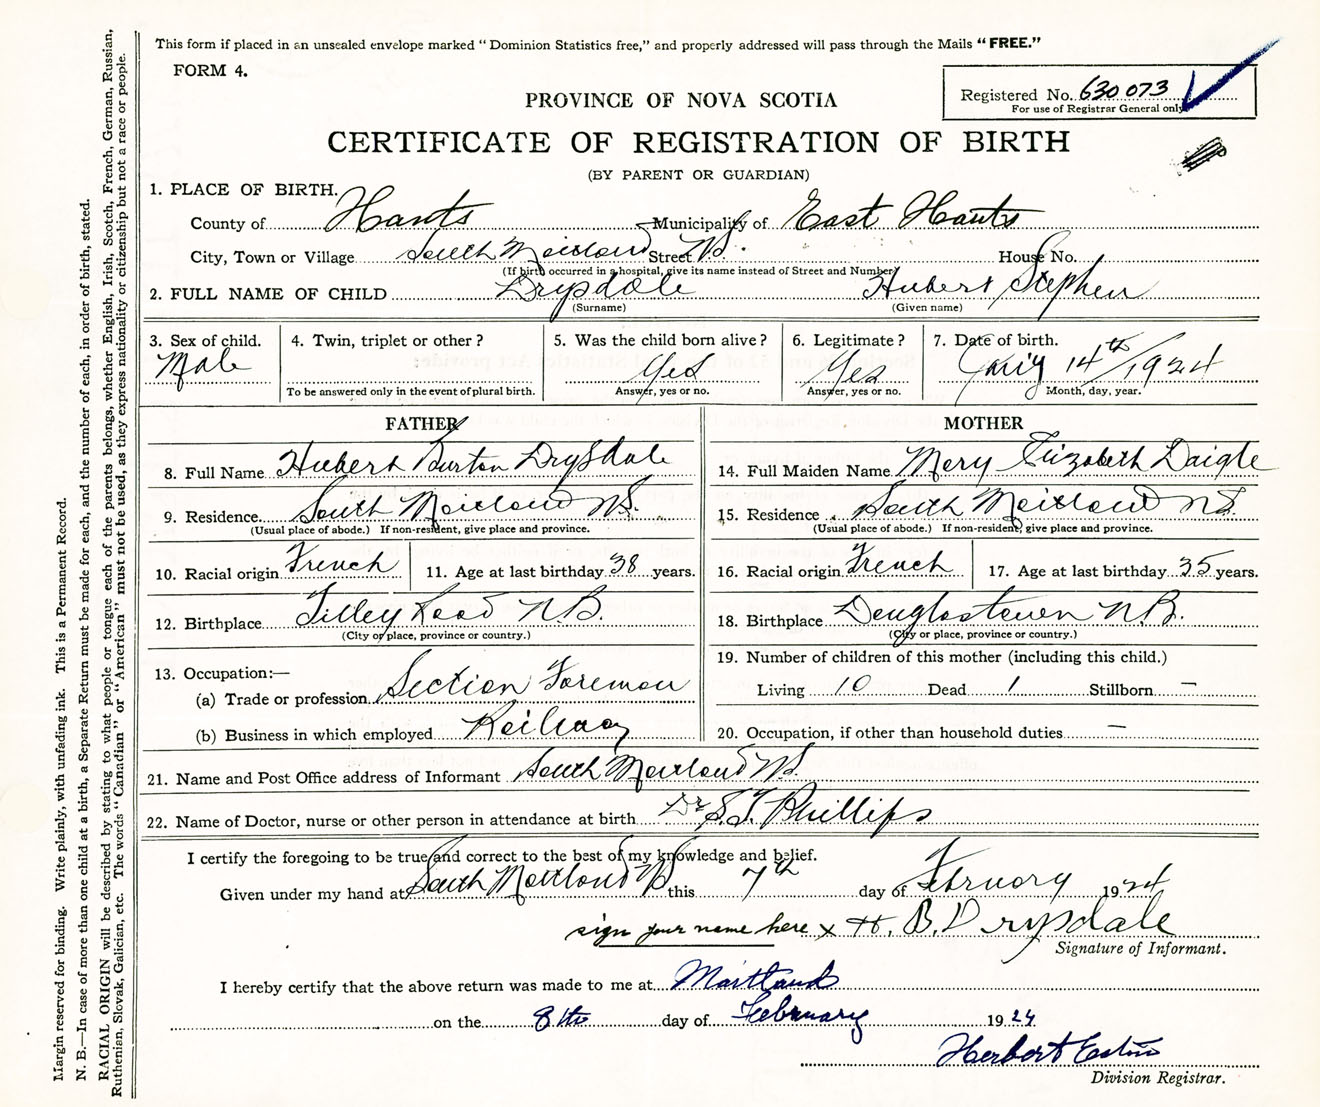 This form if placed in an unsealed envelope marked "Dominion Statistics free," and properly addressed will pass through the Mails "FREE."
FORM 4.
Registered No. 630073
For use of Registrar General only
PROVINCE OF NOVA SCOTIA
CERTIFICATE OF REGISTRATION OF BIRTH
(BY PARENT OR GUARDIAN)
1. PLACE OF BIRTH.
County of Hants Municipality of East Hants
City, Town or Village South Maitland Street N.S. House No.
(If birth occurred in a hospital, give its name instead of Street and Number)
2. FULL NAME OF CHILD Drysdale Hubert Stephen
(Surname) (Given name)
3. Sex of child. 4. Twin, triplet or other? 5. Was the child born alive? 6. Legitimate? 7. Date of birth.
Male Yes Yes 14th/1924
To be answered only in the event of plural birth. Answer, yes or no. Answer, yes or no. Month, day, year.
FATHER MOTHER
8. Full Name Hubert Burton Drysdale 14. Full Maiden Name Mary Elizabeth Daigle
9. Residence South Maitland N.S. 15. Residence South Maitland N.S.
(Usual place of abode.) If non-resident, give place and province. (Usual place of abode.) If non-resident, give place and province.
10. Racial origin French 11. Age at last birthday 38 years. 16. Racial origin French 17. Age at last birthday 35 years.
12. Birthplace Tilley Road N.B. 18. Birthplace Douglastown N.B.
(City or place, province or country.) (City or place, province or country.)
13. Occupation:— 19. Number of children of this mother (including this child.)
(a) Trade or profession Section Foreman Living 10 Dead 1 Stillborn —
(b) Business in which employed Railway 20. Occupation, if other than household duties —
21. Name and Post Office address of Informant South Maitland N.S.
22. Name of Doctor, nurse or other person in attendance at birth Dr S.T. Phillips
I certify the foregoing to be true and correct to the best of my knowledge and belief.
Given under my hand at South Maitland NS this 7th day of February 1924
sign your name here x H. B. Drysdale
Signature of Informant.
I hereby certify that the above return was made to me at Maitland
on the 8th day of February 1924
Herbert
Division Registrar.
Margin reserved for binding. Write plainly, with unfading ink. This is a Permanent Record.
N. B.—In case of more than one child at a birth, a Separate Return must be made for each, and the number of each, in order of birth, stated.
RACIAL ORIGIN will be described by stating to what people or tongue each of the parents belongs, whether English, Irish, Scotch, French, German, Russian,
Ruthenian, Slovak, Galician, etc. The words "Canadian" or "American" must not be used, as they express nationality or citizenship but not a race or people.